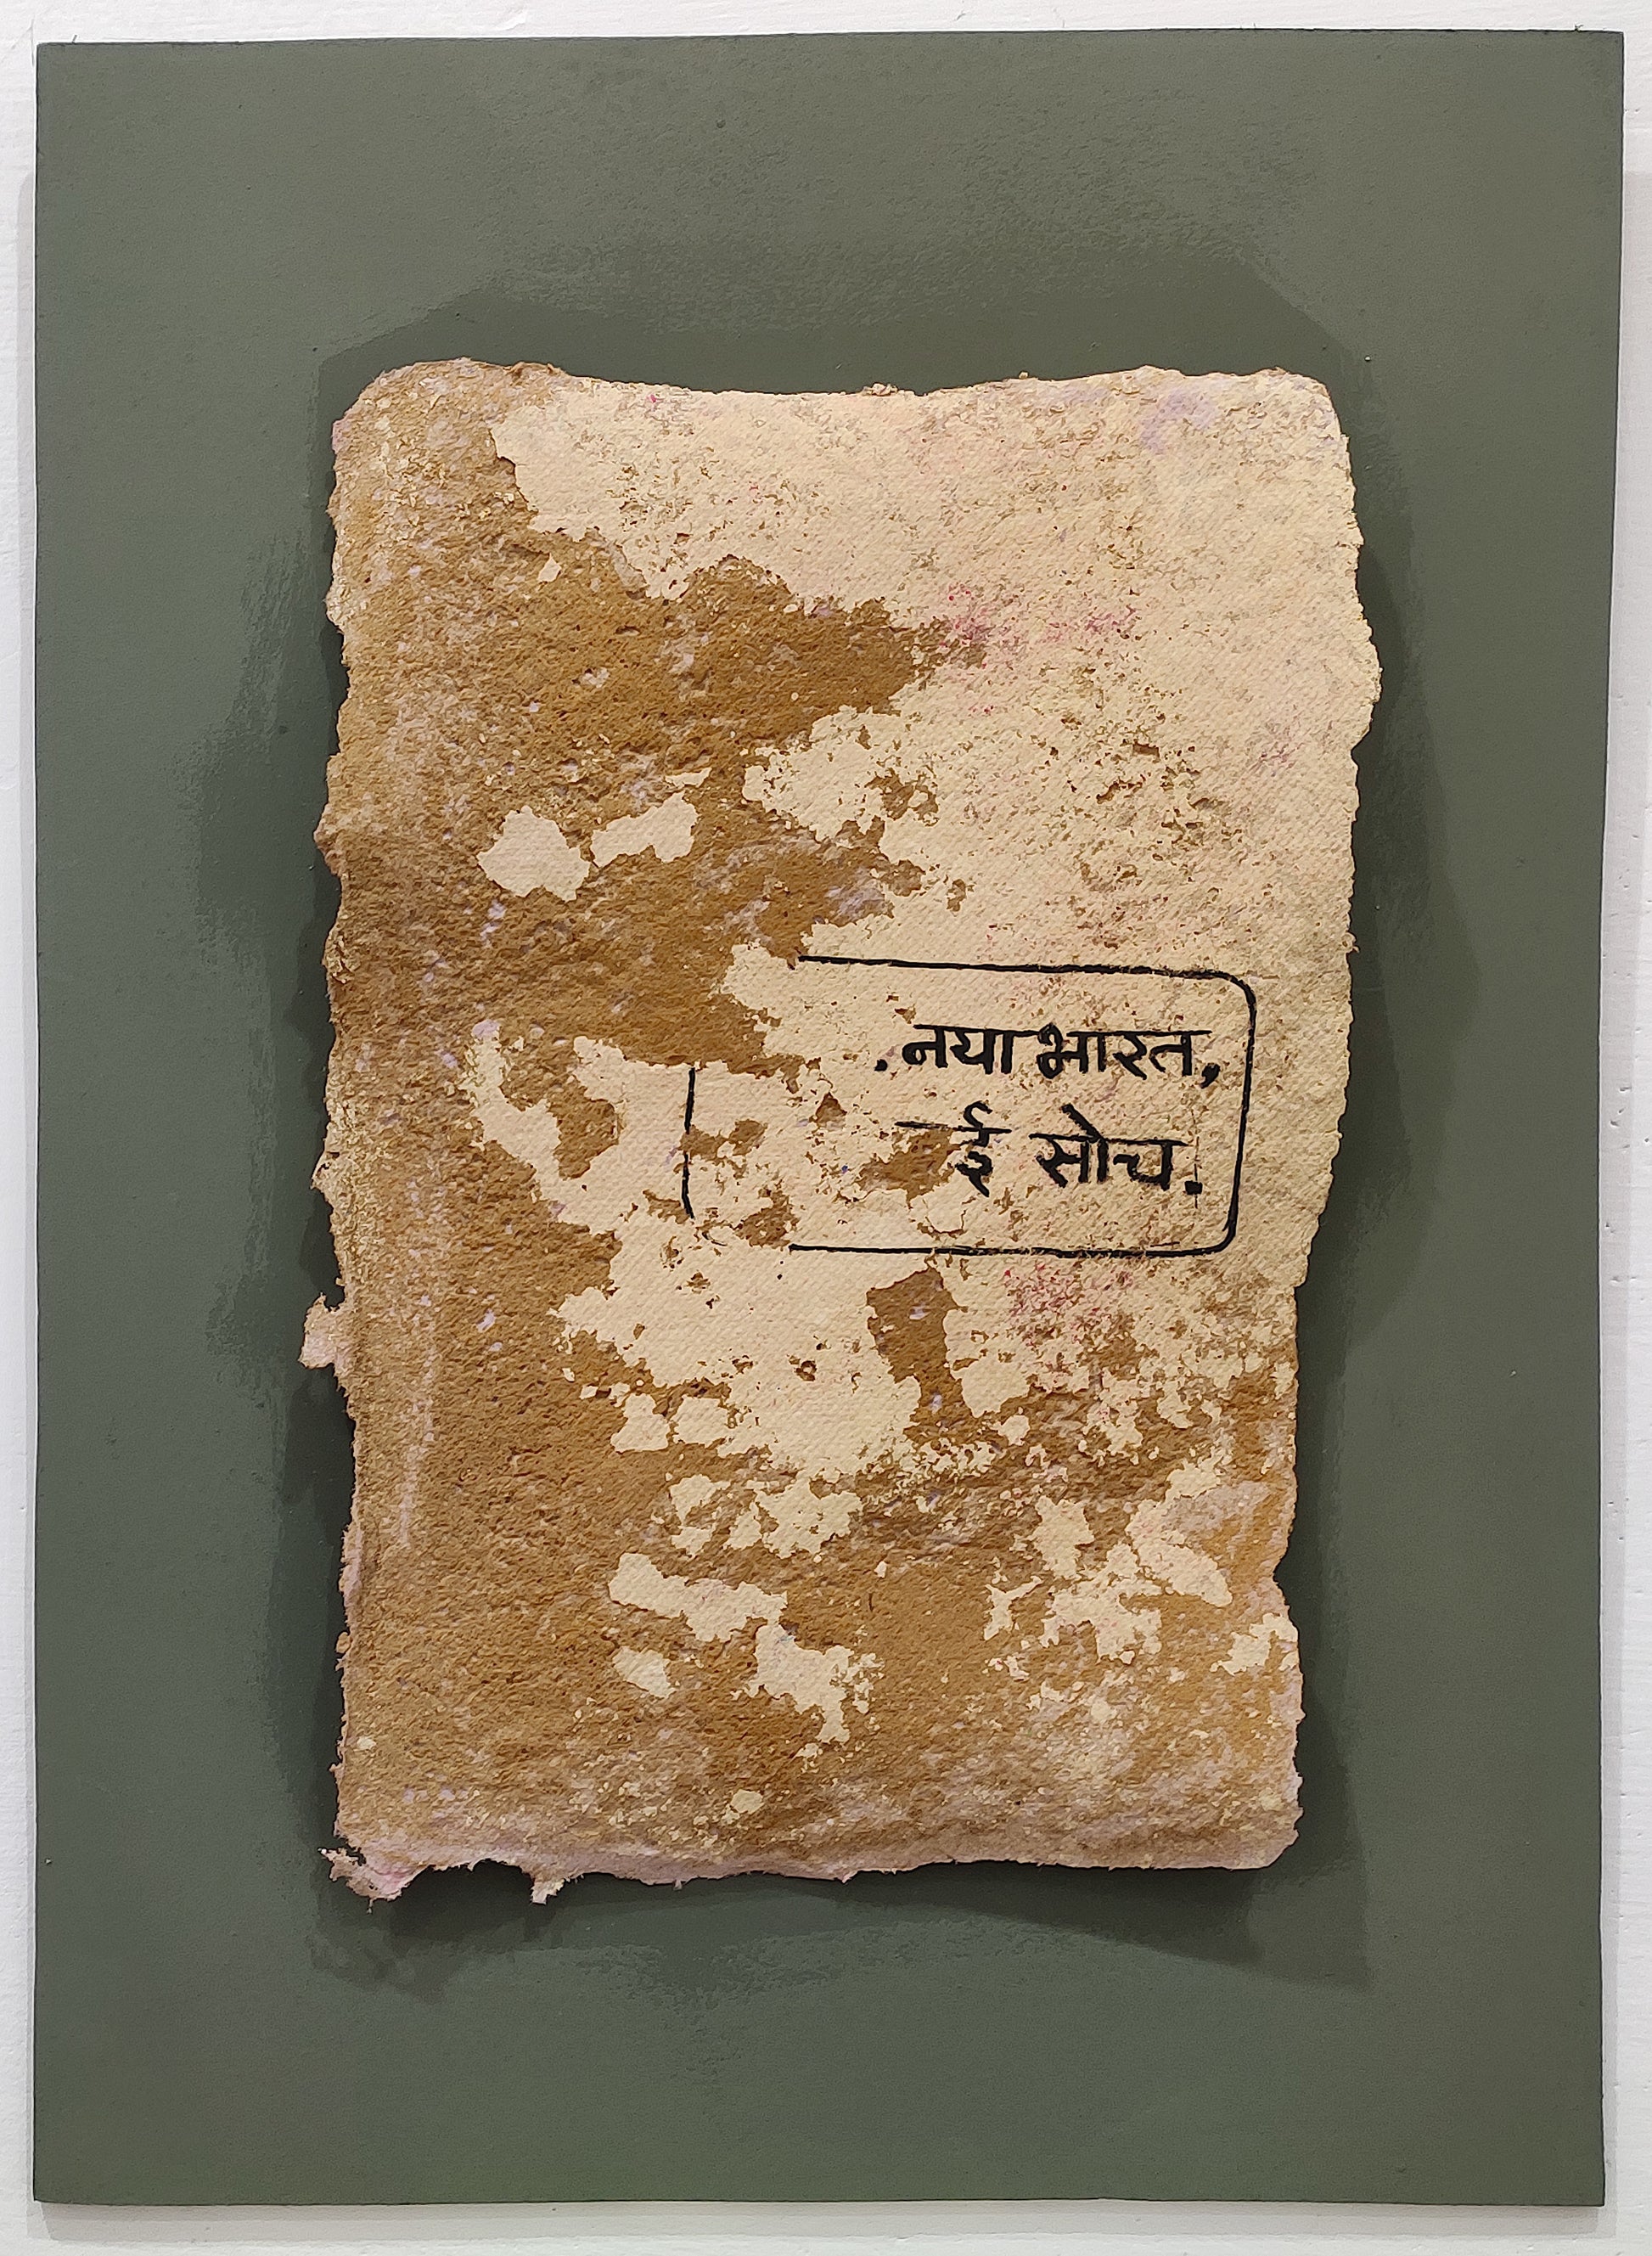 . नया भारत,
ई सोच.